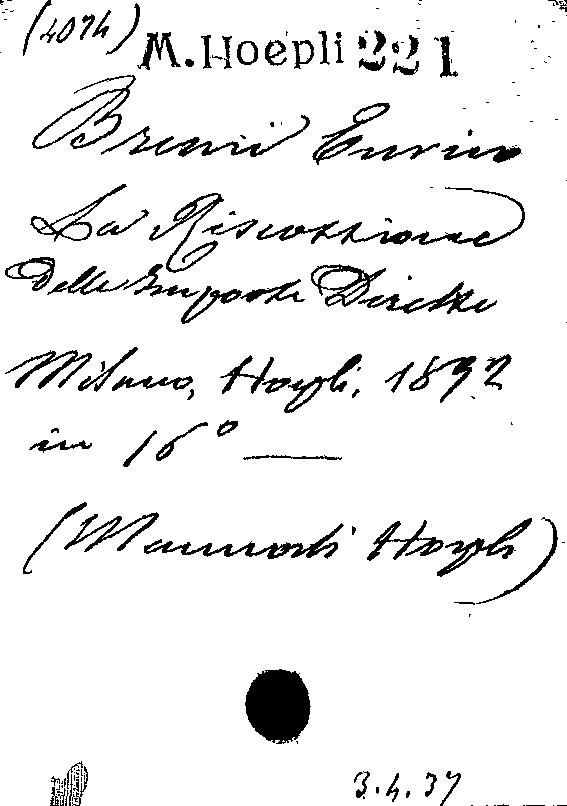 (4074)
M. Hoepli 221
Bremi Enrico
La Riscossione
delle Imposte Dirette
Milano, Hoepli, 1892
in 16° —
(Manuali Hoepli)
3.4.37